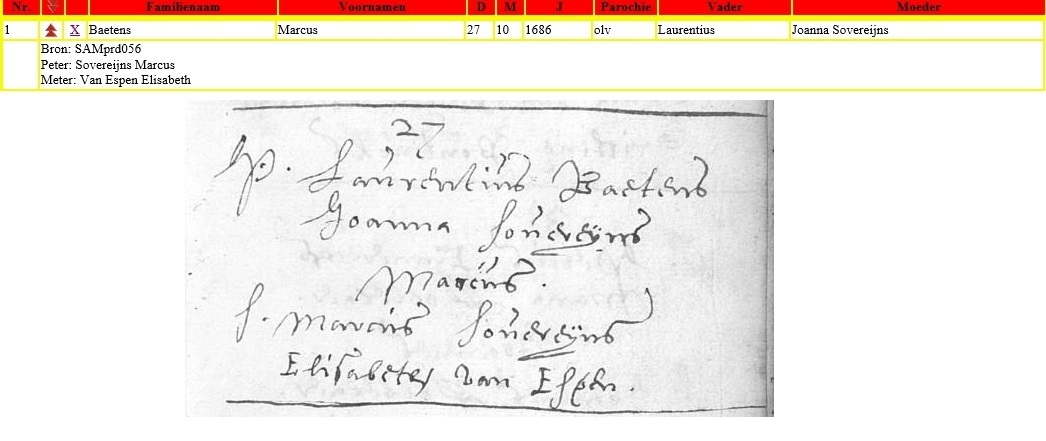 Nr. Familienaam Voornamen D M J Parochie Vader Moeder
1 X Baetens Marcus 27 10 1686 olv Laurentius Joanna Sovereijns
Bron: SAMprd056
Peter: Sovereijns Marcus
Meter: Van Espen Elisabeth
27
P. Laurentius Baetens
Joanna Souereyns
Marcus.
S. Marcus Souereyns
Elisabeth van Espen.